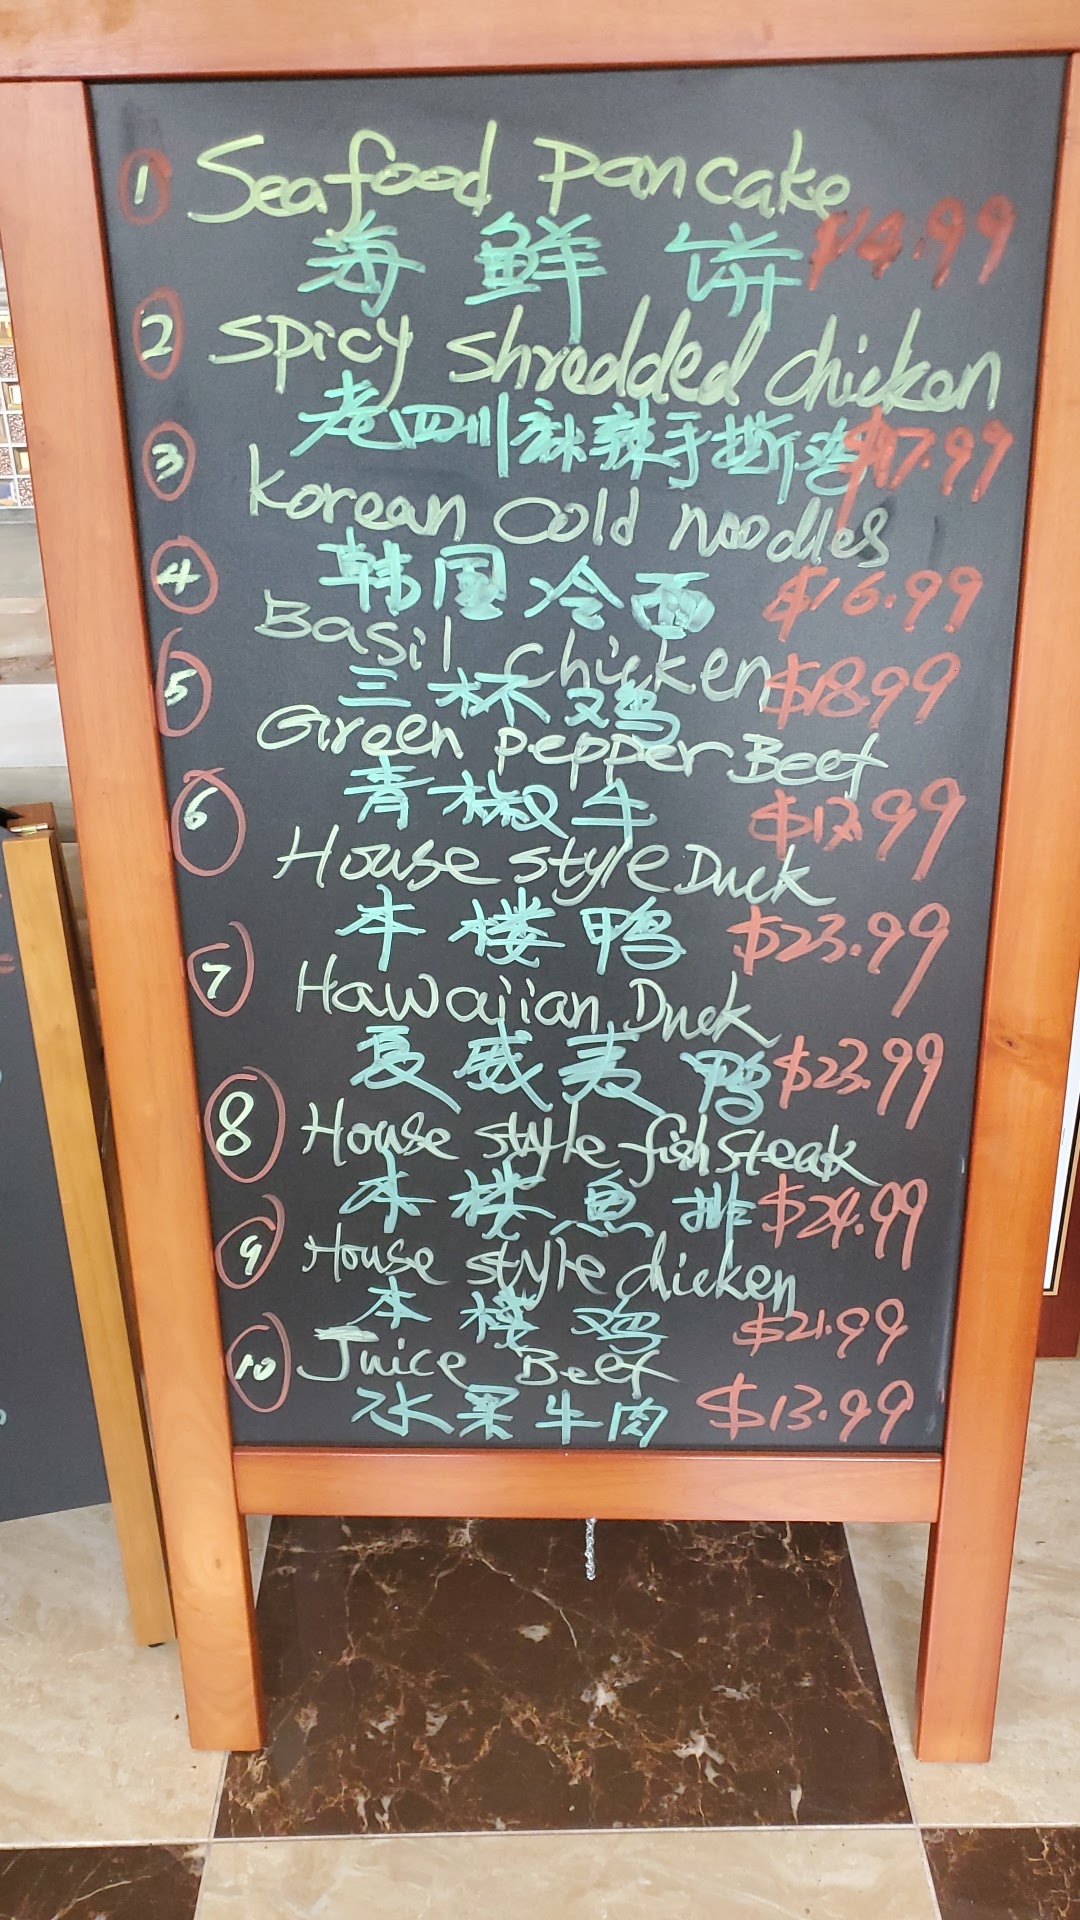 1 Seafood Pancake
海 鲜 饼 $14.99
2 Spicy Shredded Chicken
老四川麻辣手撕鸡 $17.99
3 Korean Cold Noodles
韩国冷面 $16.99
4 Basil Chicken
三杯鸡 $18.99
5 Green Pepper Beef
青椒牛
6 House Style Duck
本楼鸭 $23.99
7 Hawaiian Duck
夏威夷鸭 $23.99
8 House Style fish Steak
本楼鱼排 $24.99
9 House Style Chicken
本楼鸡 $21.99
10 Juice Beef
水果牛肉 $13.99